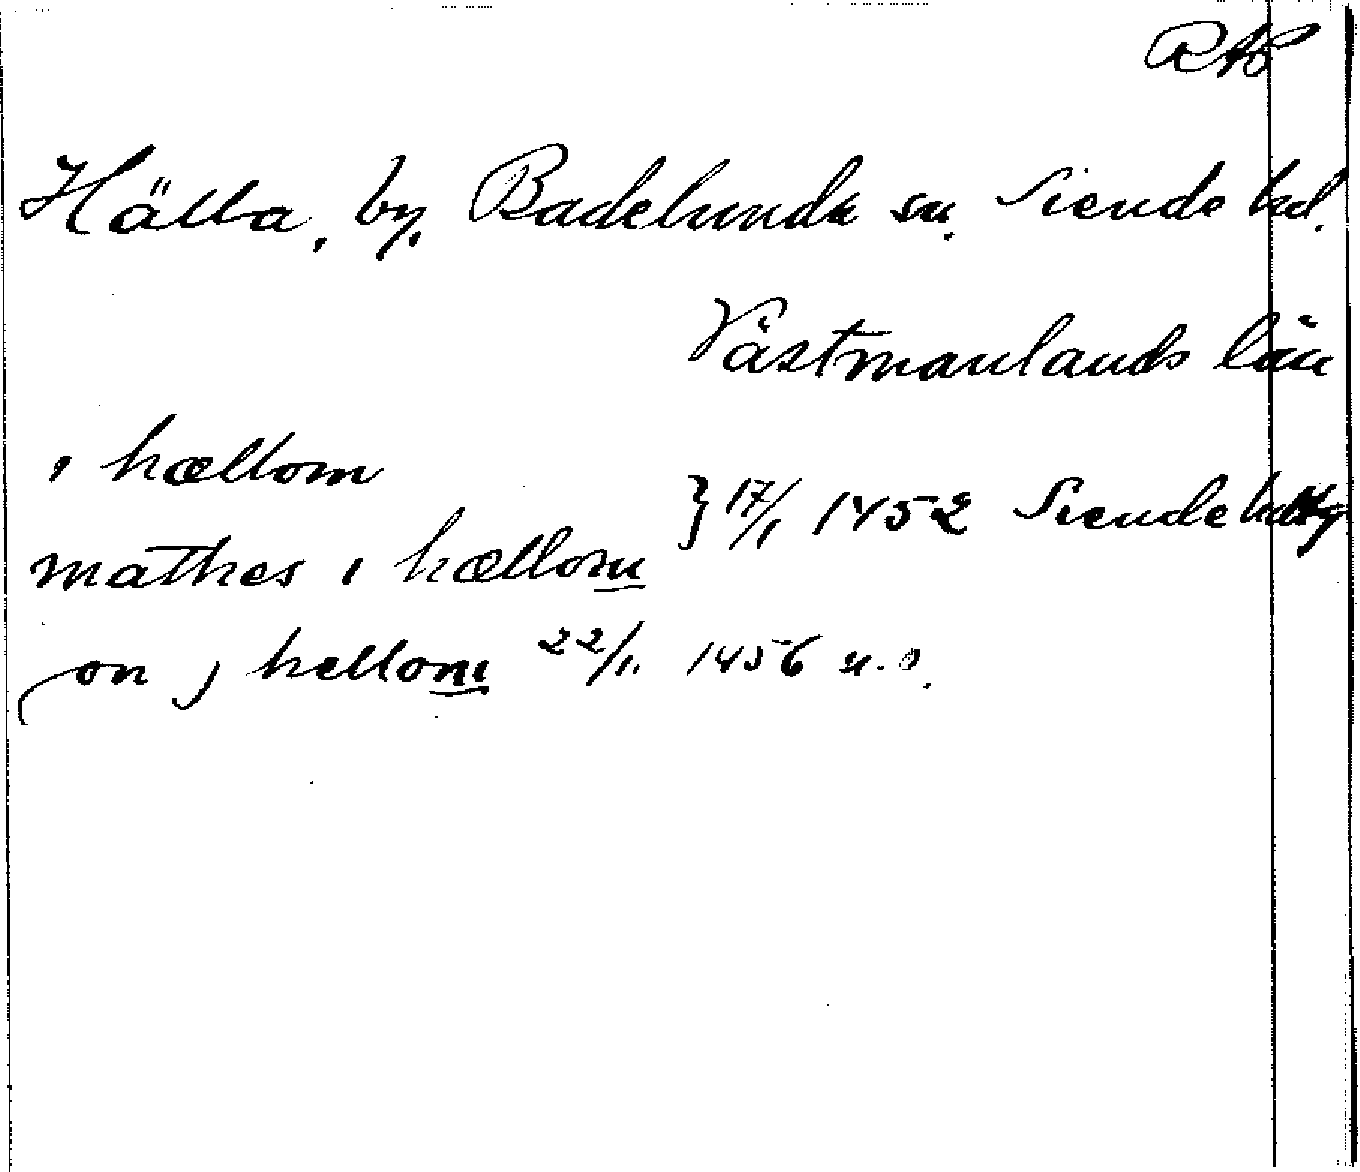 RAP
Hälla, by, Badelunda sn. Siende hd.
Västmanlands län
i hællom
mathes i hællom } 17/1 1452 Siende hdtg
jon j hellom 22/11 1456 u.o.